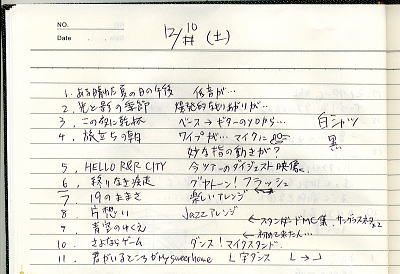 NO.
Date
12/10 (土)
1. ある晴れた夏の日の午後 低音が…
2. 光と影の季節 爆発的なもりあがりが…
3. この夜に乾杯 ベース→ギターのソロから…
白シャツ
4. 旅立ちの朝 ワイプが… マイクに
黒
妙な指の動きが?
5, HELLO R&R CITY 今ツアーのダイジェスト映像。
6, 終りなき疾走 グヤトーン! フラッシュ
7, 19のままさ 楽しいアレンジ
8 片想い Jazzアレンジ
←スタンダードMC集, サングラスネタ×2
9 青空のゆくえ ←初めて来たん…
10, さよならゲーム ダンス! マイクスタンド.
11, 君がいるところがMy sweet home L字ダンス L→